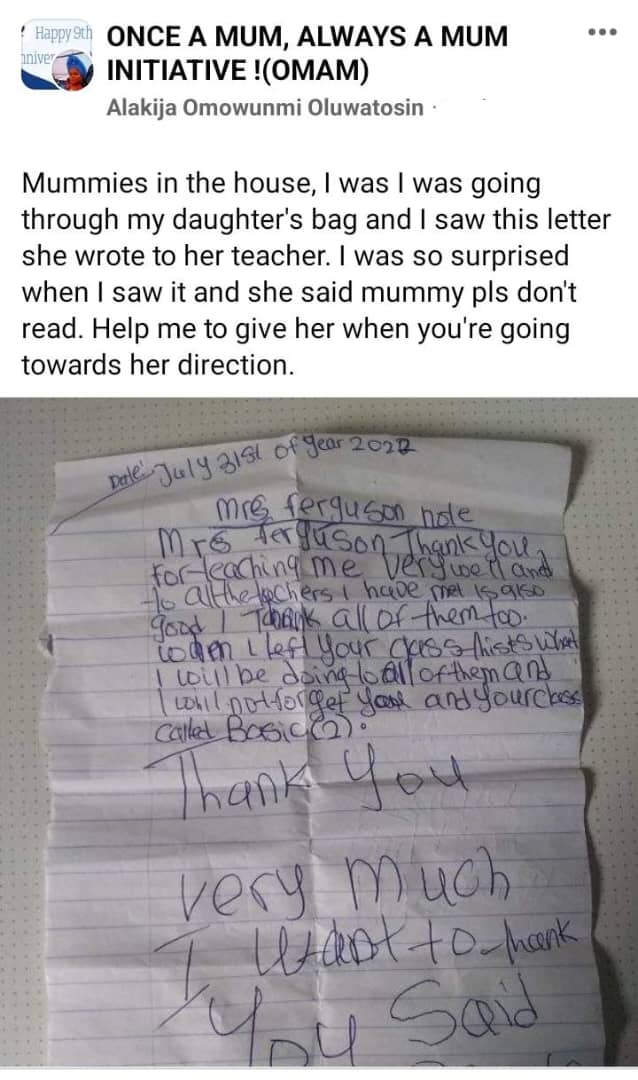 Happy 9th
ONCE A MUM, ALWAYS A MUM
INITIATIVE !(OMAM)
Alakija Omowunmi Oluwatosin ·
Mummies in the house, I was I was going
through my daughter's bag and I saw this letter
she wrote to her teacher. I was so surprised
when I saw it and she said mummy pls don't
read. Help me to give her when you're going
towards her direction.
Date: July 31st of year 2022
Mrs ferguson note
Mrs ferguson Thank you
for teaching me very well and
to all the teachers I have met is also
good I Thank all of them too.
when I left your class this is what
I will be doing to all of them and
I will not forget you and your class
Called Basic (2).
Thank You
very much
I want to thank
You Said